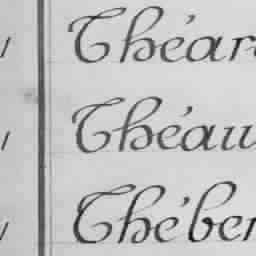 Théar
Théau
Théber